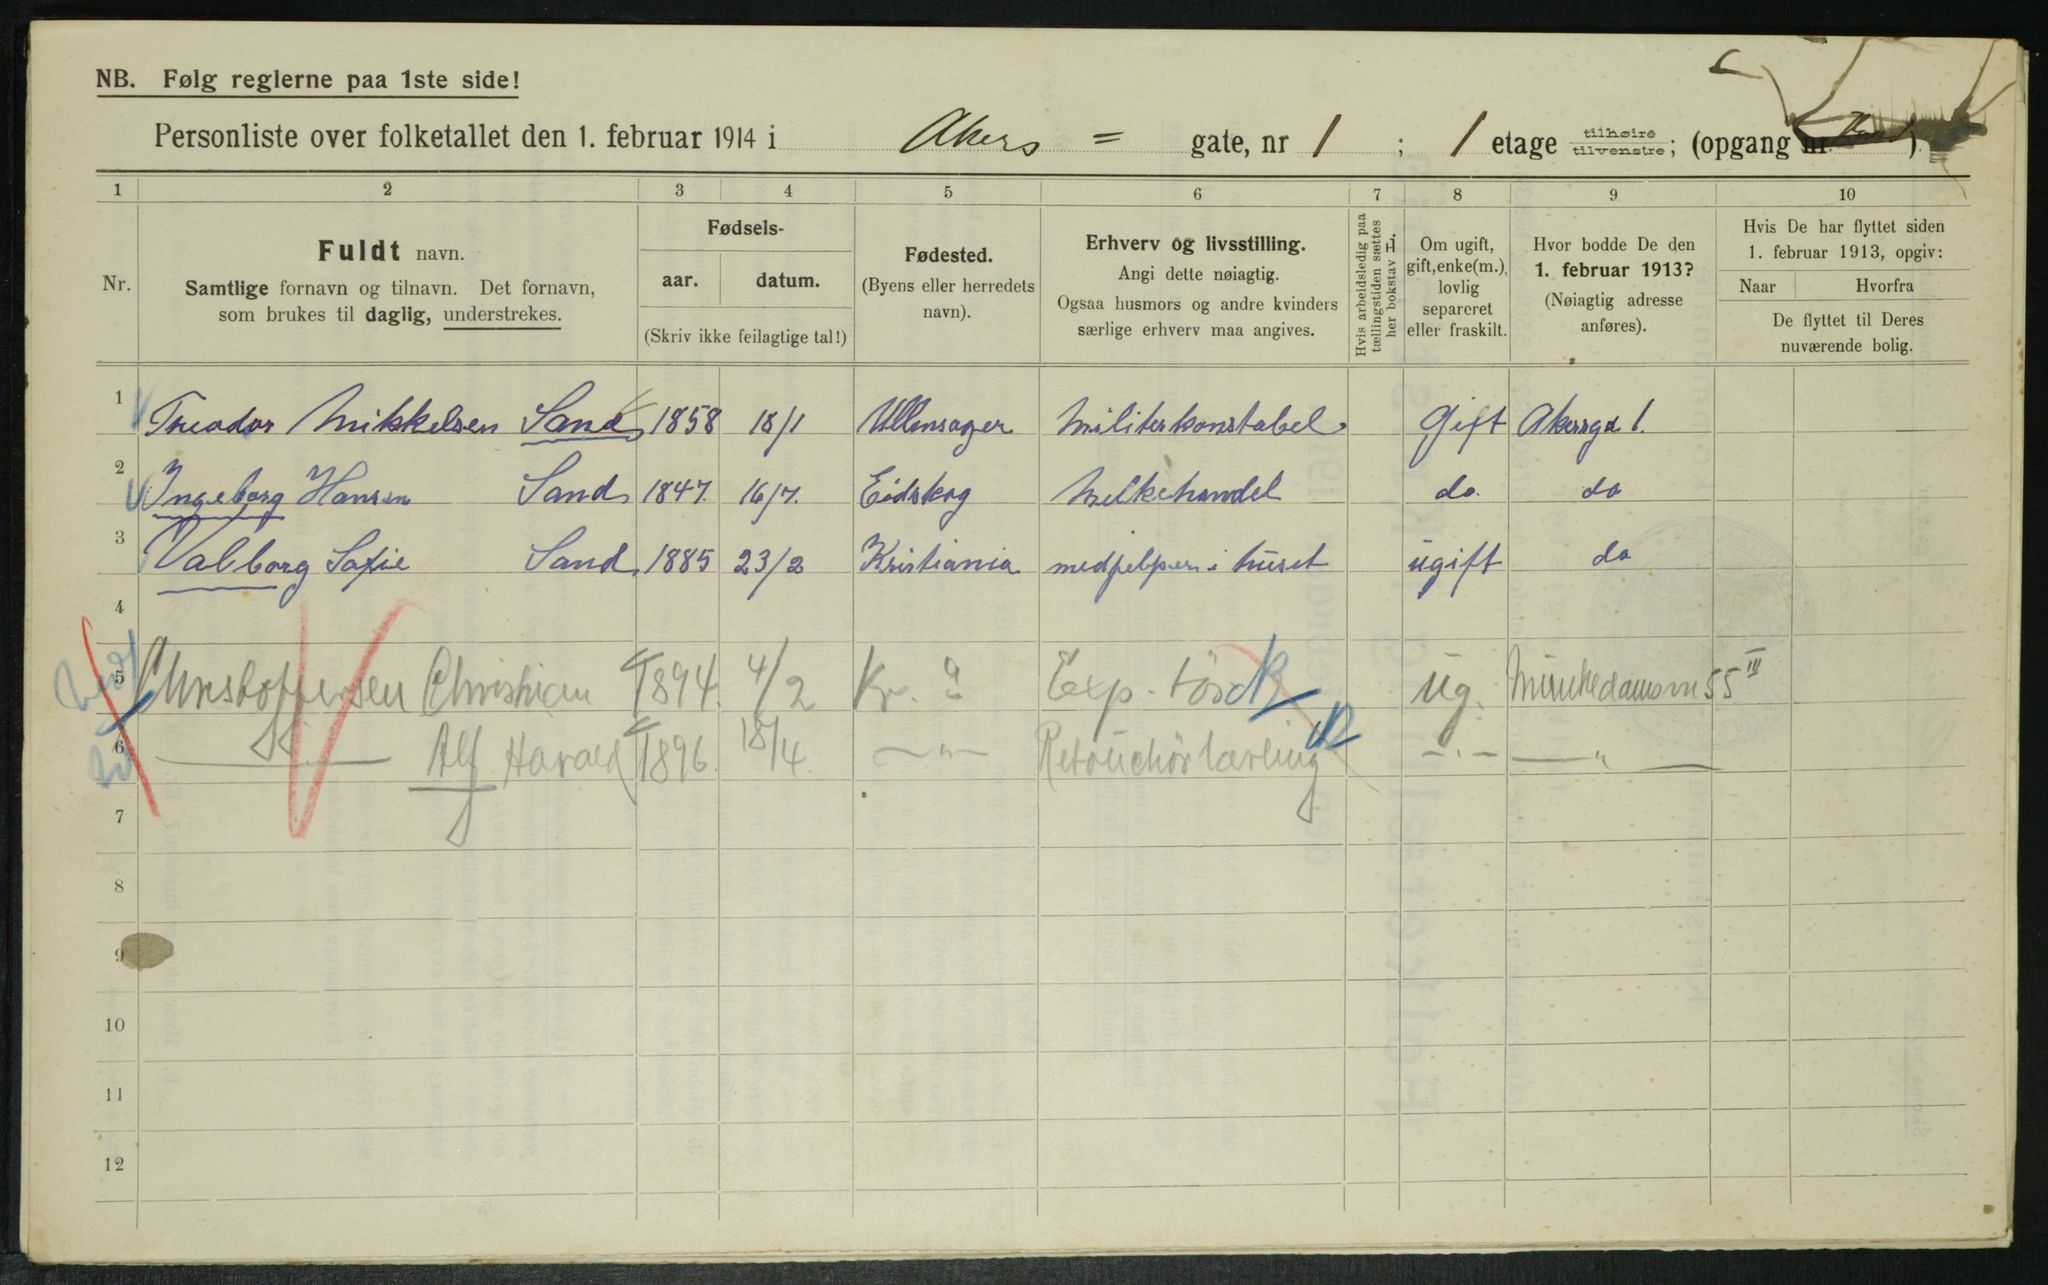 NB. Følg reglerne paa 1ste side!
Personliste over folketallet den 1. februar 1914 i Akers = gate, nr 1 ; 1 etage tilhøire tilvenstre; (opgang nr )
1 2 3 4 5 6 7 8 9 10
Nr.
Fuldt navn.
Samtlige fornavn og tilnavn. Det fornavn,
som brukes til daglig, understrekes.
Fødsels-
aar. datum.
(Skriv ikke feilagtige tal!)
Fødested.
(Byens eller herredets
navn).
Erhverv og livsstilling.
Angi dette nøiagtig.
Ogsaa husmors og andre kvinders
særlige erhverv maa angives.
Hvis arbeidsledig paa
tællingstiden sættes
her bokstav L.
Om ugift,
gift, enke(m.),
lovlig
separeret
eller fraskilt.
Hvor bodde De den
1. februar 1913?
(Nøiagtig adresse
anføres).
Hvis De har flyttet siden
1. februar 1913, opgiv:
Naar Hvorfra
De flyttet til Deres
nuværende bolig.
1 Theodor Mikkelsen Sand 1858 18/1 Ullensager Militerkonstabel Gift Akersgd 1.
2 Ingeborg Hansen Sand 1847 16/7. Eidskog Melkehandel do. do
3 Valborg Sofie Sand 1885 23/2 Kristiania medhjelper i huset ugift do
4
5 Christoffersen Christian 1894. 4/2 Kr. ug. Munkedamsvn 55 III
6 — " — Alf Harald 1896. 18/4. — " — Retouchörlærling — " — — " —
7
8
9
10
11
12